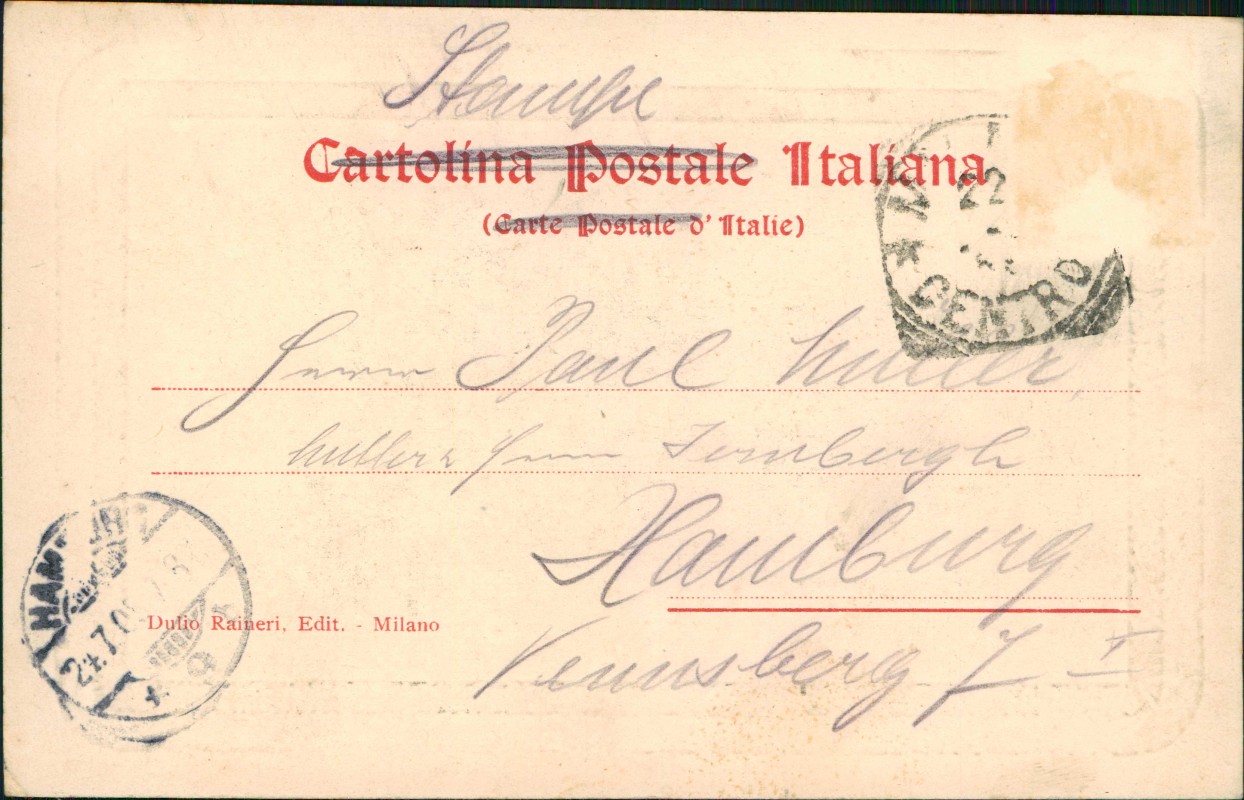 Stampe
Cartolina Postale Italiana
(Carte Postale d'Italie)
22
CENTRO
Herrn Paul Müller,
Hamburg
Venusberg 7 I
HAMBURG
24.7.0
Dulio Raineri, Edit. - Milano